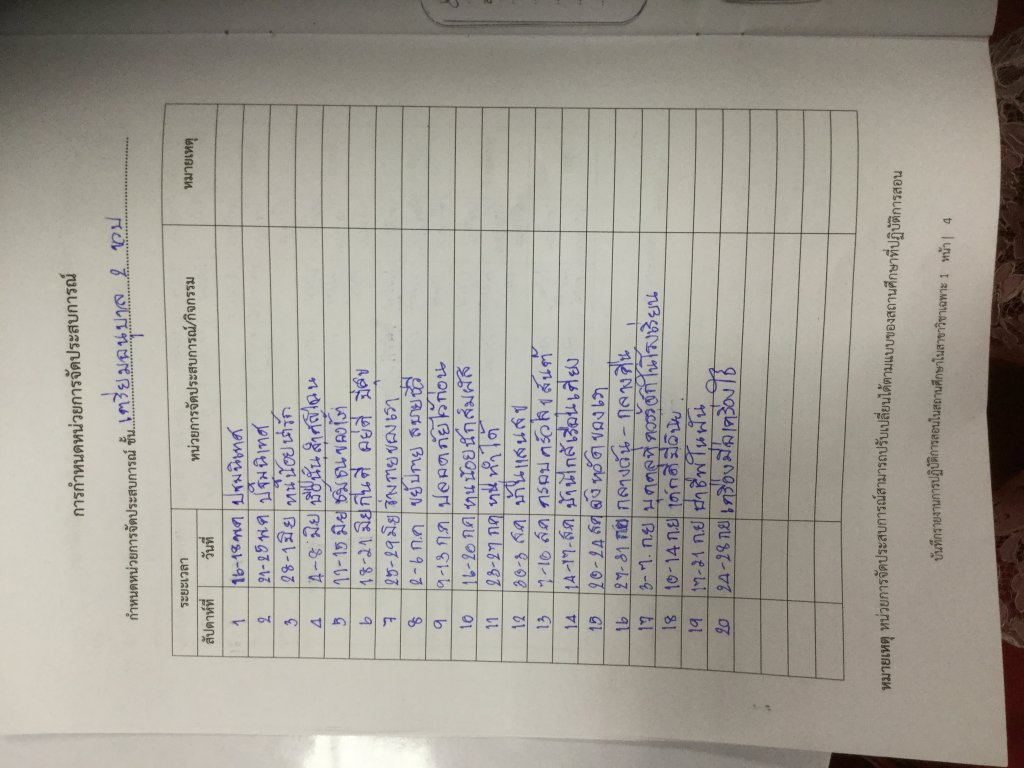 การกำหนดหน่วยการจัดประสบการณ์
กำหนดหน่วยการจัดประสบการณ์ ชั้น เตรียมอนุบาล 2 ขวบ
ระยะเวลา หน่วยการจัดประสบการณ์/กิจกรรม หมายเหตุ
สัปดาห์ที่ วันที่
1 16-18 พค ปฐมนิเทศ
2 21-25 พค ปฐมนิเทศ
3 28-1 มิย หนูน้อยน่ารัก
4 4-8 มิย
5 11-15 มิย
6 18-21 มิย กินดี อยู่ดี มีสุข
7 25-29 มิย ร่างกายของเรา
8 2-6 กค ขยับกาย สบายชีวี
9 9-13 กค ปลอดภัยไว้ก่อน
10 16-20 กค หนูน้อยนักสัมผัส
11 23-27 กค หนูทำได้
12 30-3 สค บ้านแสนสุข
13 7-10 สค ครอบครัวสุขสันต์
14 14-17 สค บ้านใกล้เรือนเคียง
15 20-24 สค จังหวัดของเรา
16 27-31 สค กลางวัน - กลางคืน
17 3-7 กย บุคคลที่ควรรู้จักในโรงเรียน
18 10-14 กย เด็กดีมีวินัย
19 17-21 กย อาชีพในฝัน
20 24-28 กย เครื่องมือเครื่องใช้
หมายเหตุ หน่วยการจัดประสบการณ์สามารถปรับเปลี่ยนได้ตามแบบของสถานศึกษาที่ปฏิบัติการสอน
บันทึกรายงานการปฏิบัติการสอนในสถานศึกษาในสาขาวิชาเฉพาะ 1 หน้า | 4